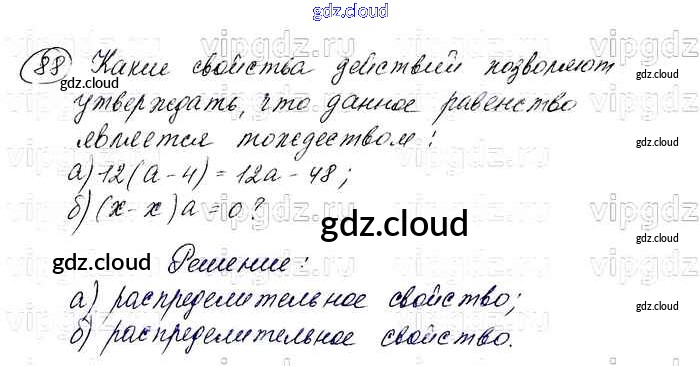 gdz.cloud
88 Какие свойства действий позволяют
gdz.cloud gdz.cloud
утверждать, что данное равенство
является тождеством:
а) 12(а - 4) = 12а - 48;
б) (х - х)а = 0?
gdz.cloud
gdz.cloud Решение:
а) распределительное свойство;
gdz.cloud gdz.cloud
б) распределительное свойство.